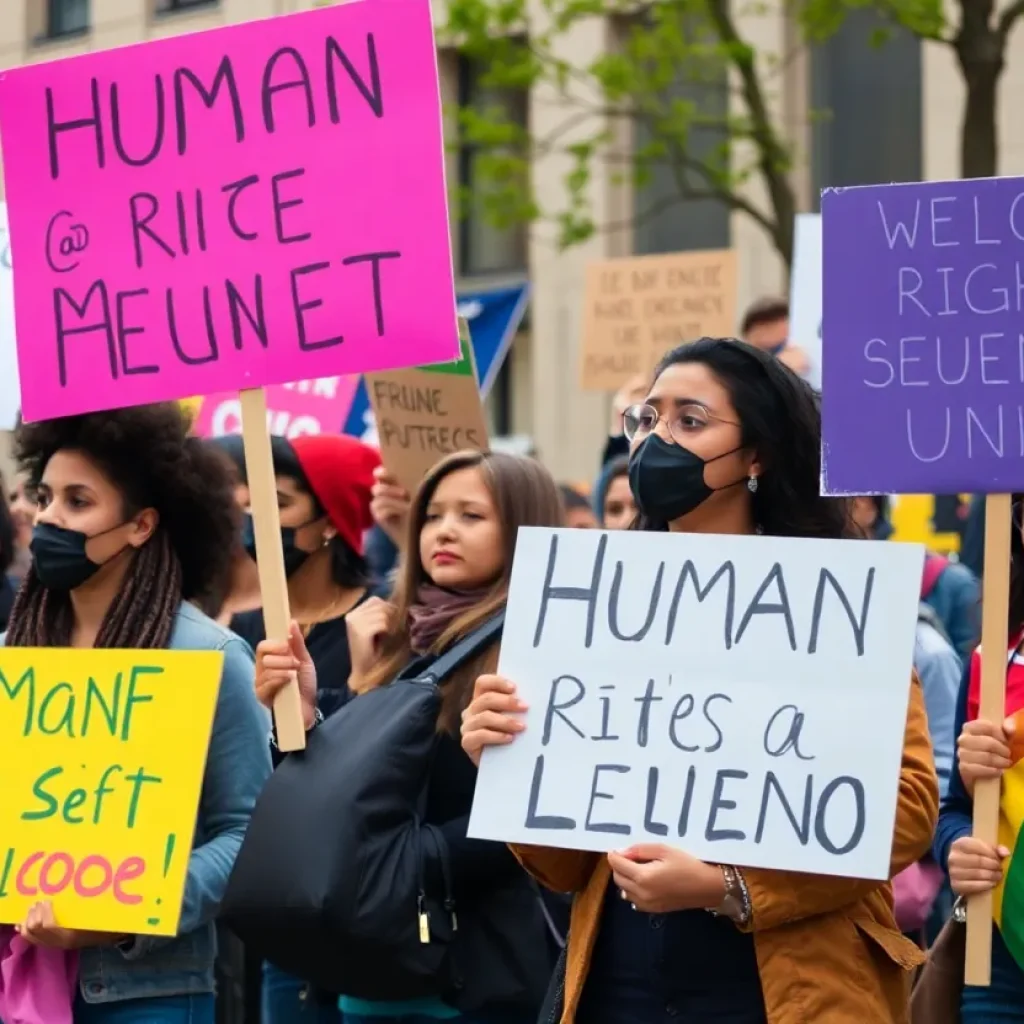 HUMAN
@ RIICE
MEUNET
FRUNE
PUTRECS
WELC
RIGH
SEUEN
UNI
MaNF
Seft
COOE!
HUMAN
Rites a
LELIENO